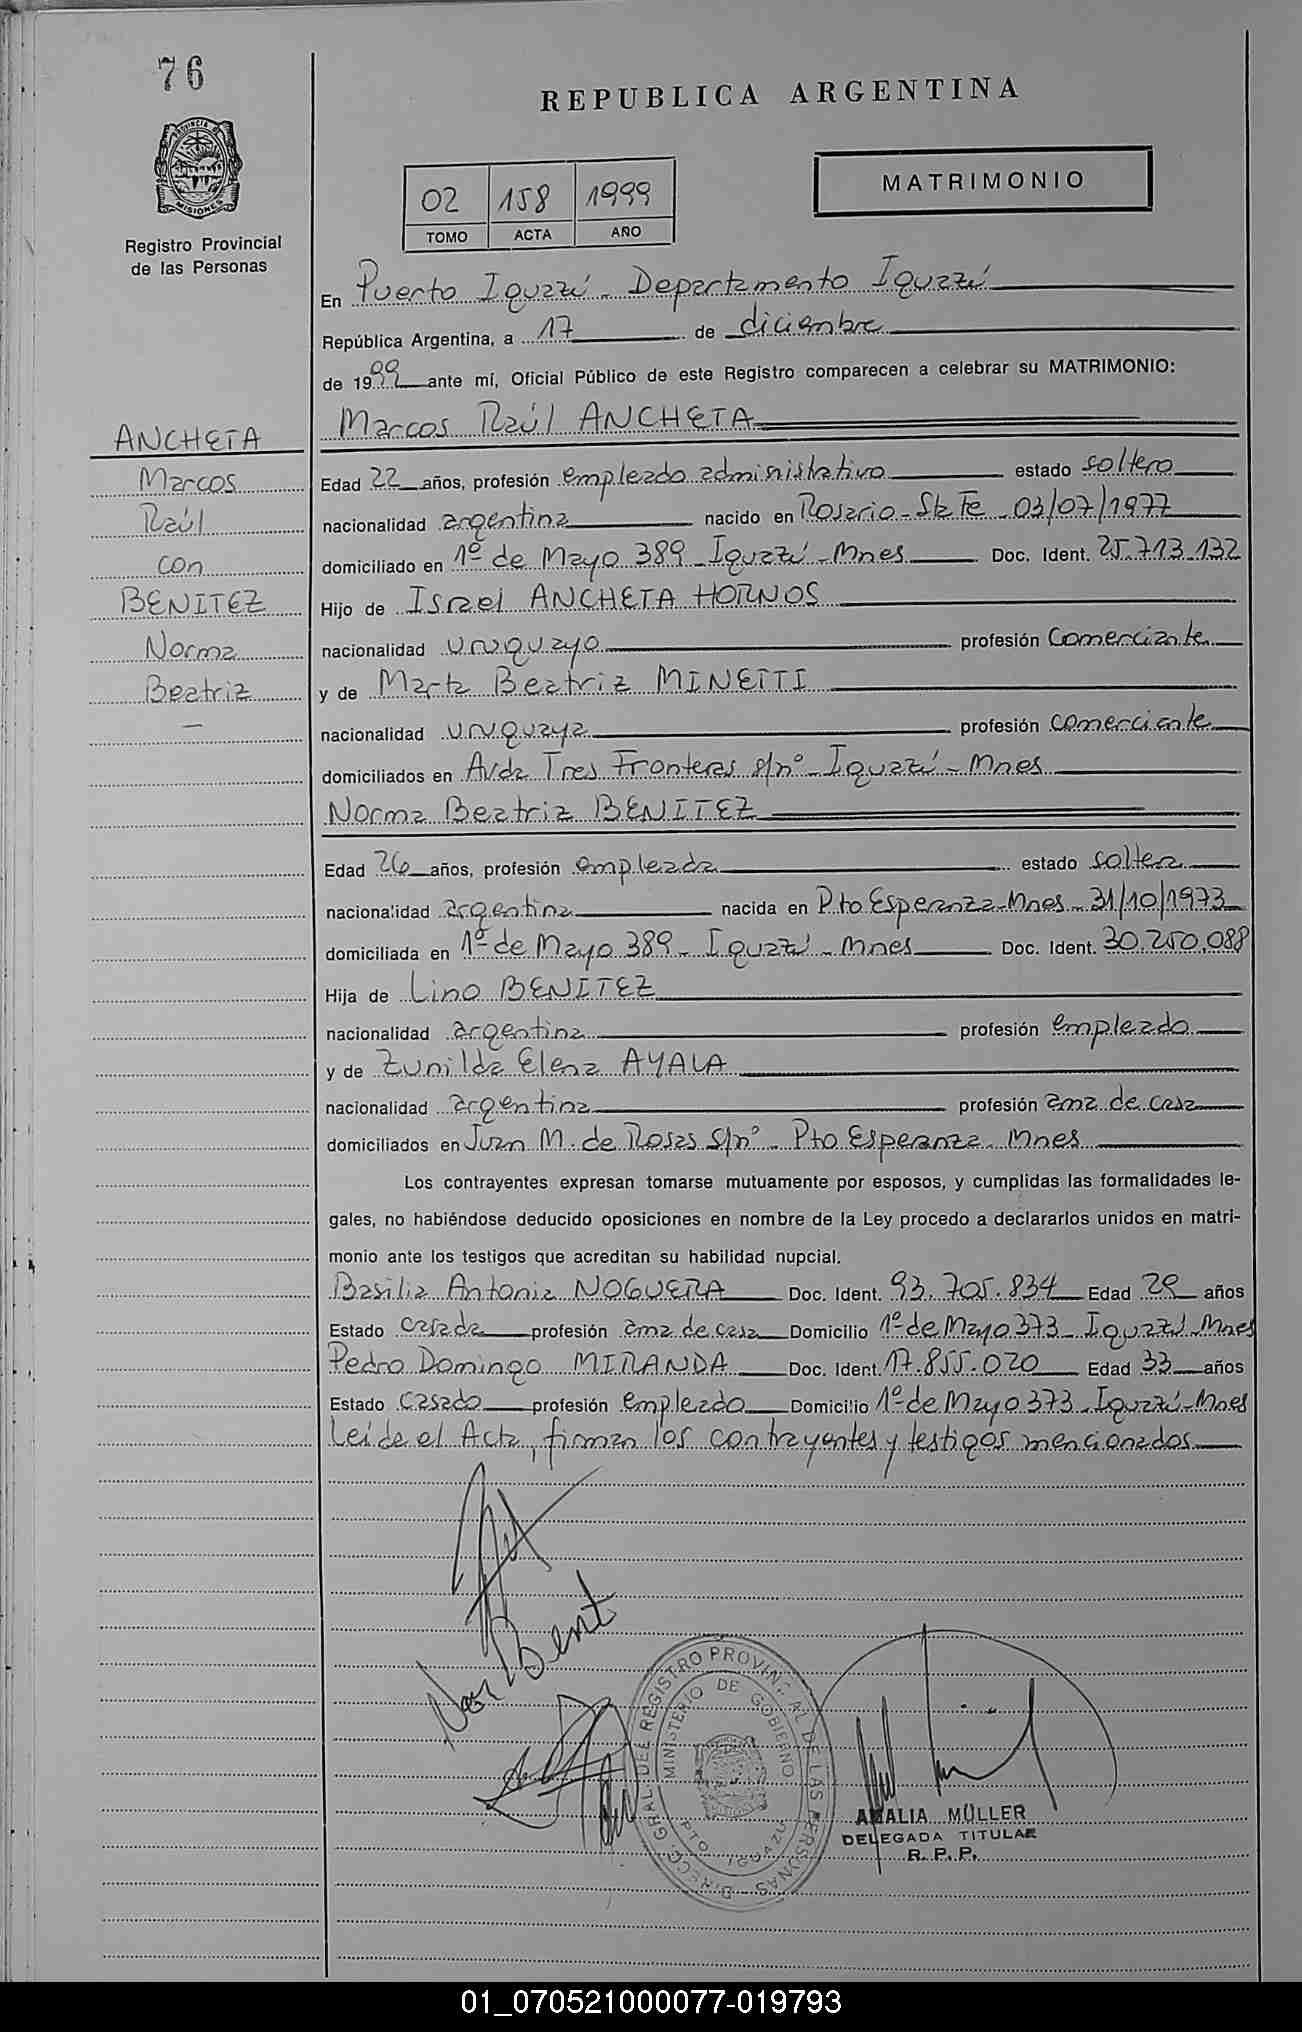 76
REPUBLICA ARGENTINA
PROVINCIA DE MISIONES
Registro Provincial
de las Personas
02 158 1999
TOMO ACTA AÑO
MATRIMONIO
En Puerto Iguazú - Departamento Iguazú
República Argentina, a 17 de diciembre
de 1999 ante mí, Oficial Público de este Registro comparecen a celebrar su MATRIMONIO:
Marcos Raúl ANCHETA
ANCHETA
Marcos
Raúl
con
BENITEZ
Norma
Beatriz
Edad 22 años, profesión empleado administrativo estado soltero
nacionalidad argentina nacido en Rosario - Sta Fe - 03/07/1977
domiciliado en 1º de Mayo 389 - Iguazú - Mnes Doc. Ident. 25.713.132
Hijo de Israel ANCHETA HORNOS
nacionalidad uruguayo profesión comerciante
y de Marta Beatriz MINETTI
nacionalidad uruguaya profesión comerciante
domiciliados en Avda Tres Fronteras s/nº - Iguazú - Mnes
Norma Beatriz BENITEZ
Edad 26 años, profesión empleada estado soltera
nacionalidad argentina nacida en Pto Esperanza - Mnes - 31/10/1973
domiciliada en 1º de Mayo 389 - Iguazú - Mnes Doc. Ident. 30.250.088
Hija de Lino BENITEZ
nacionalidad argentina profesión empleado
y de Zunilda Elena AYALA
nacionalidad argentina profesión ama de casa
domiciliados en Juan M. de Rosas s/nº - Pto Esperanza - Mnes
Los contrayentes expresan tomarse mutuamente por esposos, y cumplidas las formalidades le-
gales, no habiéndose deducido oposiciones en nombre de la Ley procedo a declararlos unidos en matri-
monio ante los testigos que acreditan su habilidad nupcial.
Basilia Antonia NOGUERA Doc. Ident. 93.705.834 Edad 29 años
Estado casada profesión ama de casa Domicilio 1º de Mayo 373 - Iguazú - Mnes
Pedro Domingo MIRANDA Doc. Ident. 17.855.020 Edad 33 años
Estado casado profesión empleado Domicilio 1º de Mayo 373 - Iguazú - Mnes
Leída el Acta, firman los contrayentes y testigos mencionados
Nor Benit
DIRECC. GRAL DEL REGISTRO PROVINCIAL DE LAS PERSONAS
MINISTERIO DE GOBIERNO
PTO. IGUAZU
AMALIA MÜLLER
DELEGADA TITULAR
R. P. P.
01_070521000077-019793